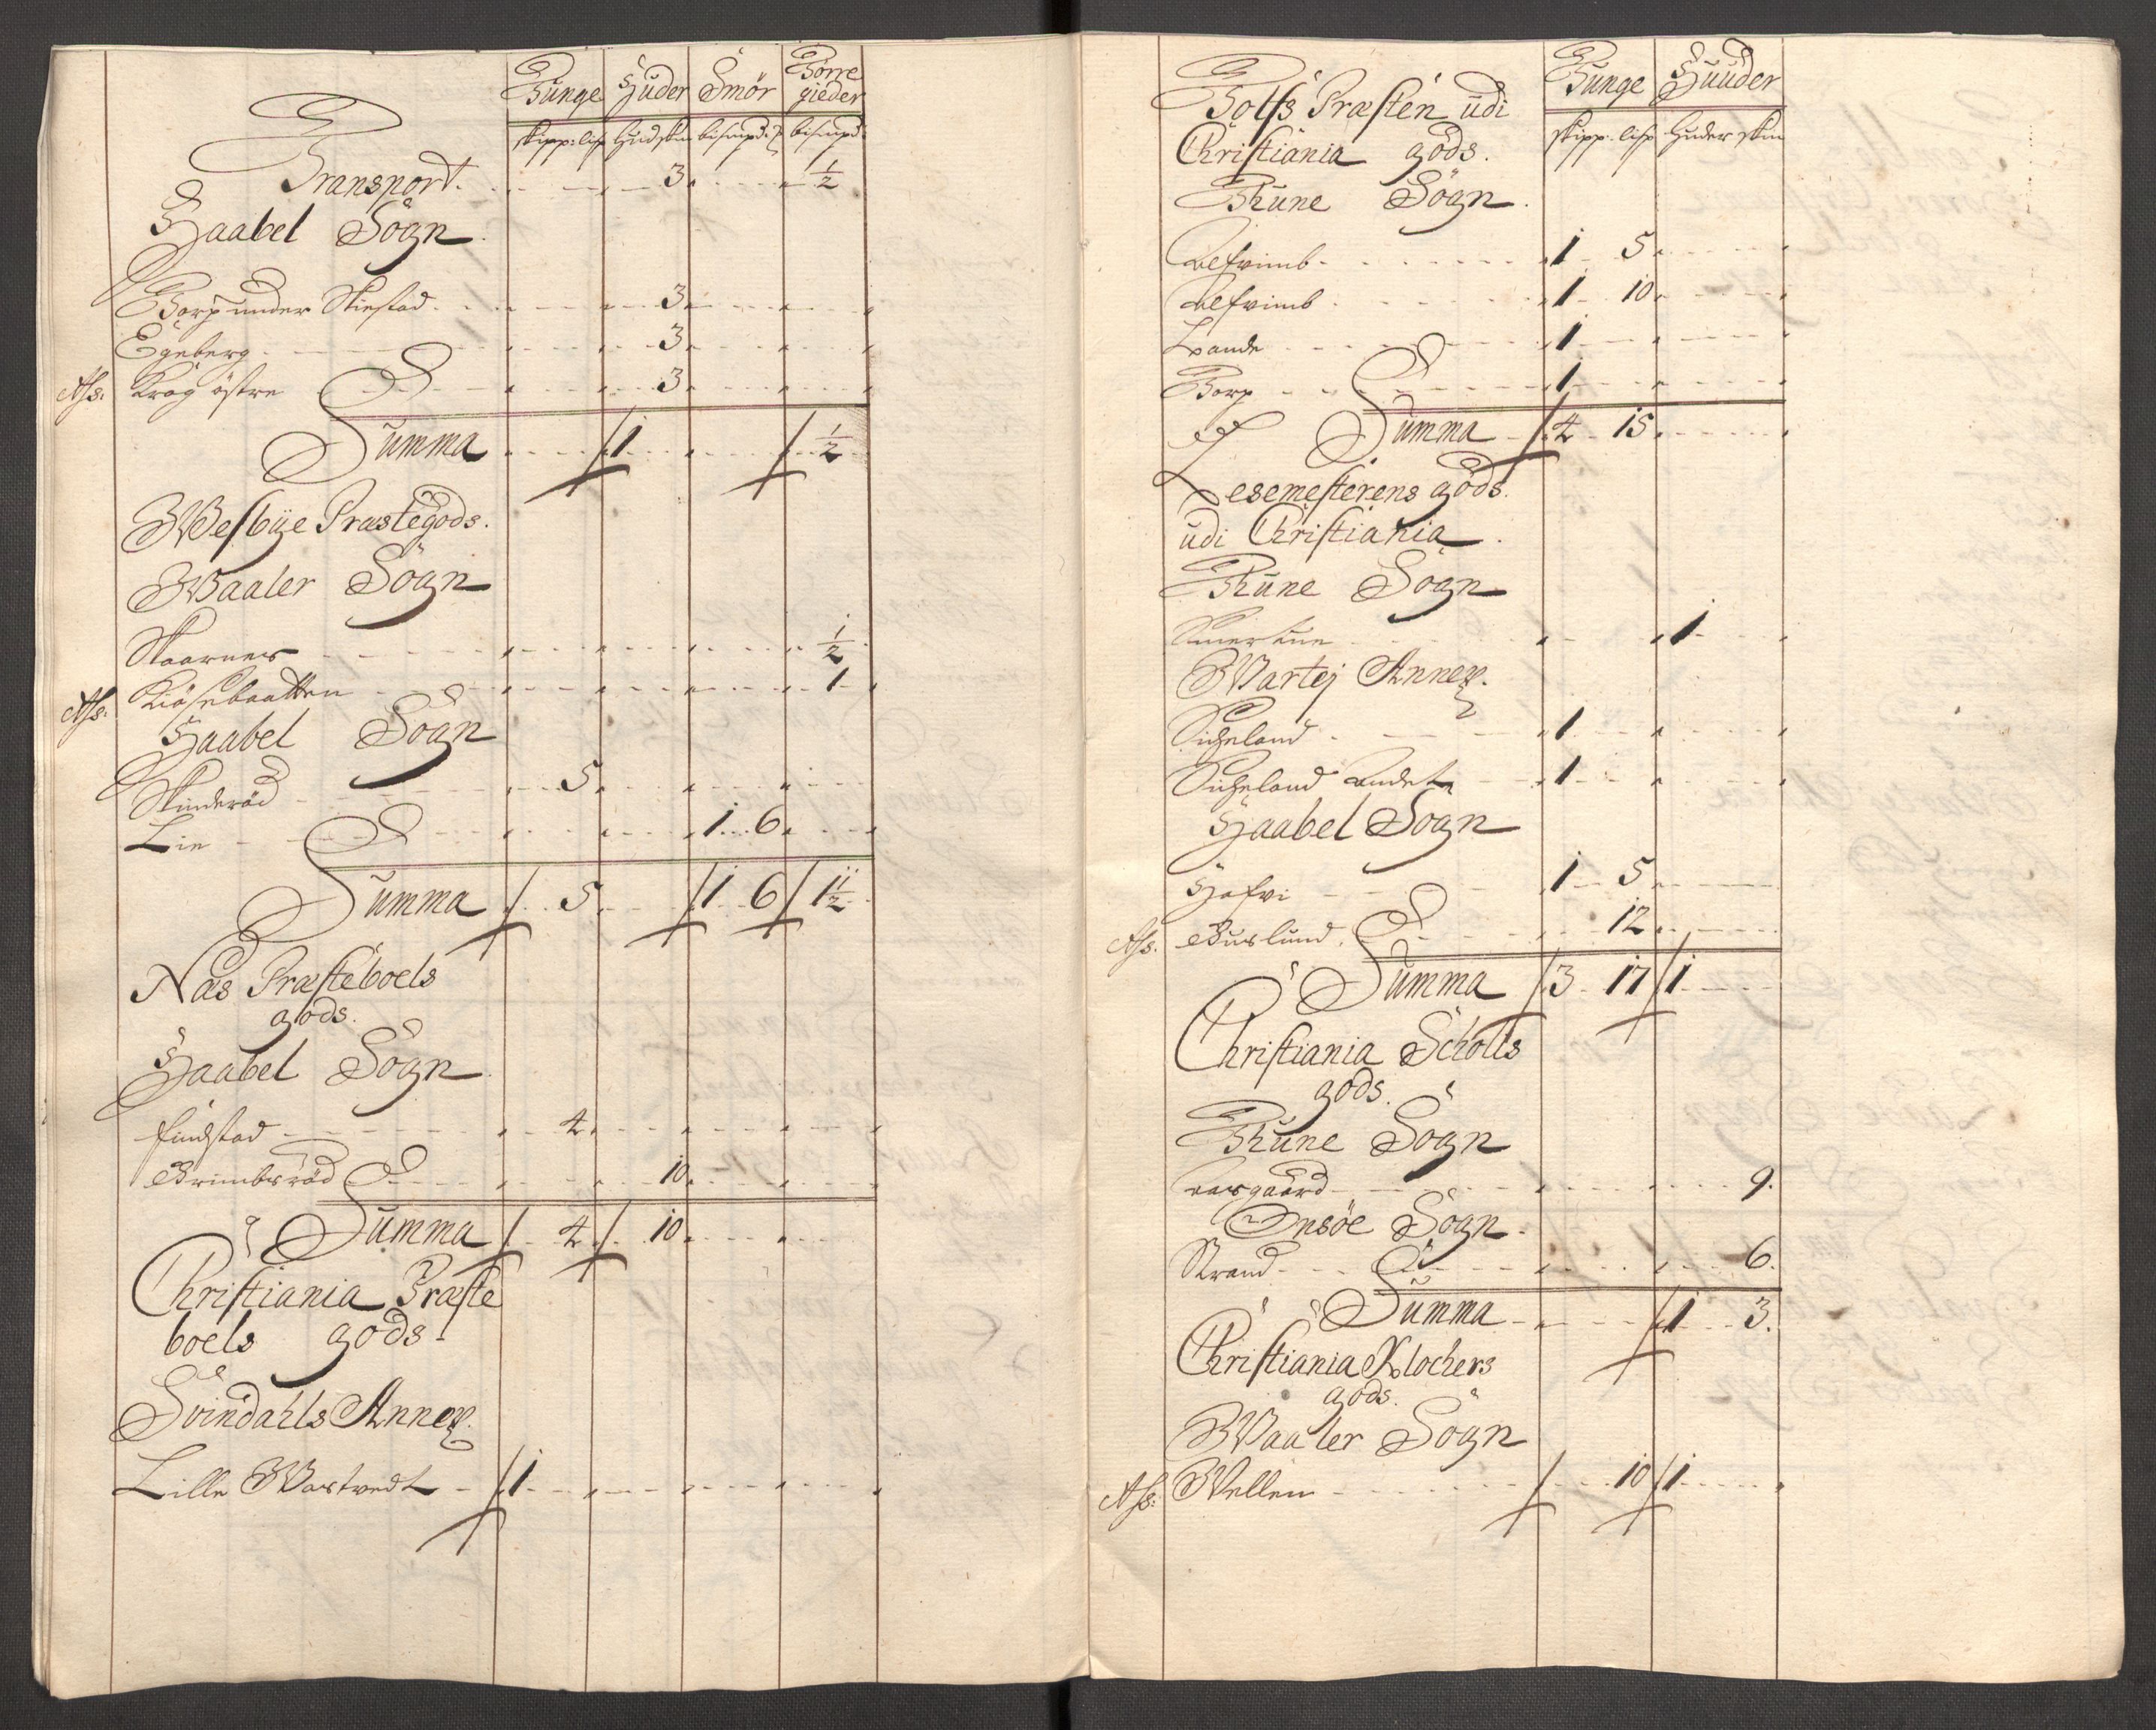 Tunge Huder Smör Törre gieder
skipp: lisp Huud skin bismpd: bismpd:
Transport. 3 ½
Haabel Sogn
Torp under Kirstad 3
Egeberg 3
Krog östre 3
Summa 1 ½
Westbÿe Præstegods.
Waaler Sogn
Skaarner ½
Kiösebraatten 1
Haabel Sogn
Skinderöd 5
Lie 1 6
Summa 5 1 6 1½
Næs Præsteboels
gods.
Haabel Sogn
Findstad 4
Brimbsröd 10
Summa 4 10
Christiania Præste
boels gods
Svindahls Annex.
Lille Wartvedt 1
Tunge Huuder
Tolfs Præsten udi
skipp: lisp Huder skin
Christiania gods.
Thune Sogn.
Alfvimb 1 5
Alfvimb 1 10
Lande 1
Torp 1
Summa 4 15
Lesemesterens gods.
udi Christiania.
Thune Sogn
1
Wartej Annex.
Sicheland 1
Sicheland Andet 1
Haabel Sogn
Hafvi 1 5
Buslund 12
Summa 3 17 1
Christiania Scholls
gods.
Thune Sogn
Aasgaard 9.
Onsöe Sogn.
Strand 6.
Summa 1 3.
Christiania Klochers
gods.
Waaler Sogn
Wellen 10 1